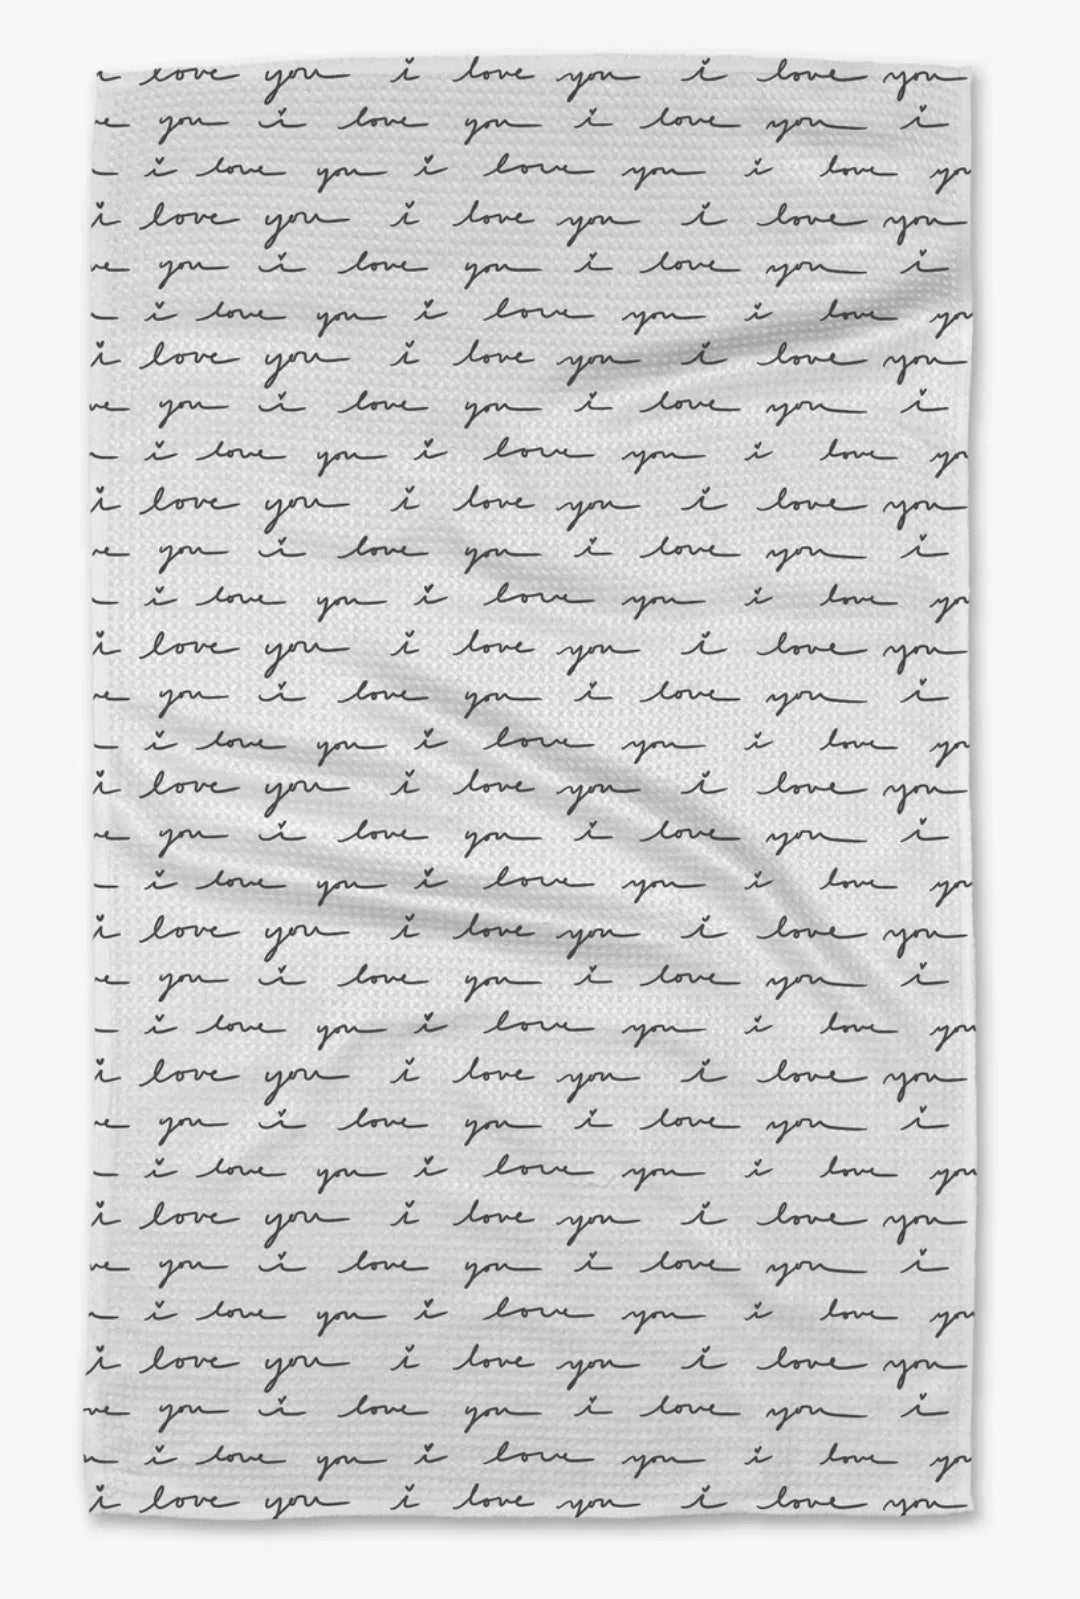 i love you i love you i love you
e you i love you i love you i
i love you i love you i love yo
i love you i love you i love you
e you i love you i love you i
i love you i love you i love yo
i love you i love you i love you
ve you i love you i love you i
i love you i love you i love yo
i love you i love you i love you
e you i love you i love you i
i love you i love you i love yo
i love you i love you i love you
e you i love you i love you i
i love you i love you i love yo
i love you i love you i love you
e you i love you i love you i
i love you i love you i love yo
i love you i love you i love you
e you i love you i love you i
i love you i love you i love you
i love you i love you i love you
e you i love you i love you i
i love you i love you i love you
i love you i love you i love you
ve you i love you i love you i
i love you i love you i love yo
i love you i love you i love you
ve you i love you i love you i
i love you i love you i love yo
i love you i love you i love you